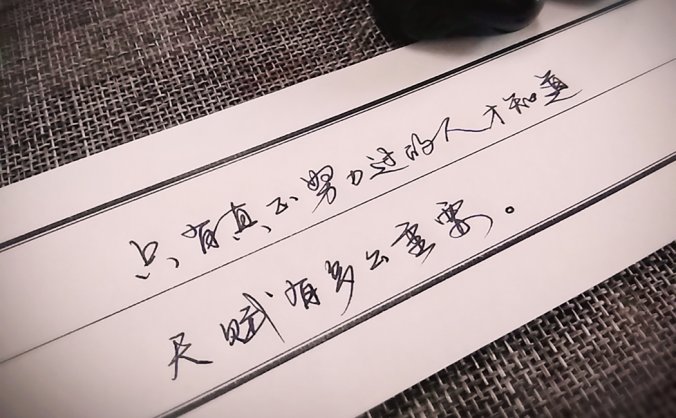 只有真正努力过的人才知道
天赋有多么重要。